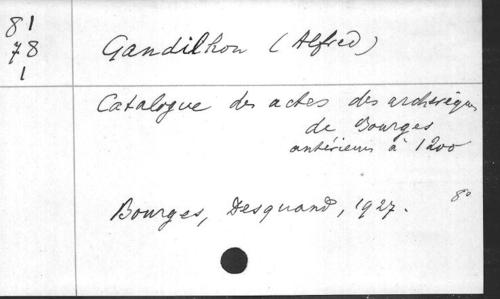 81
78
1
Gandilhon (Alfred)
Catalogue des actes des archevêques
de Bourges
antérieurs à 1200
Bourges, Desquand, 1927. 8°